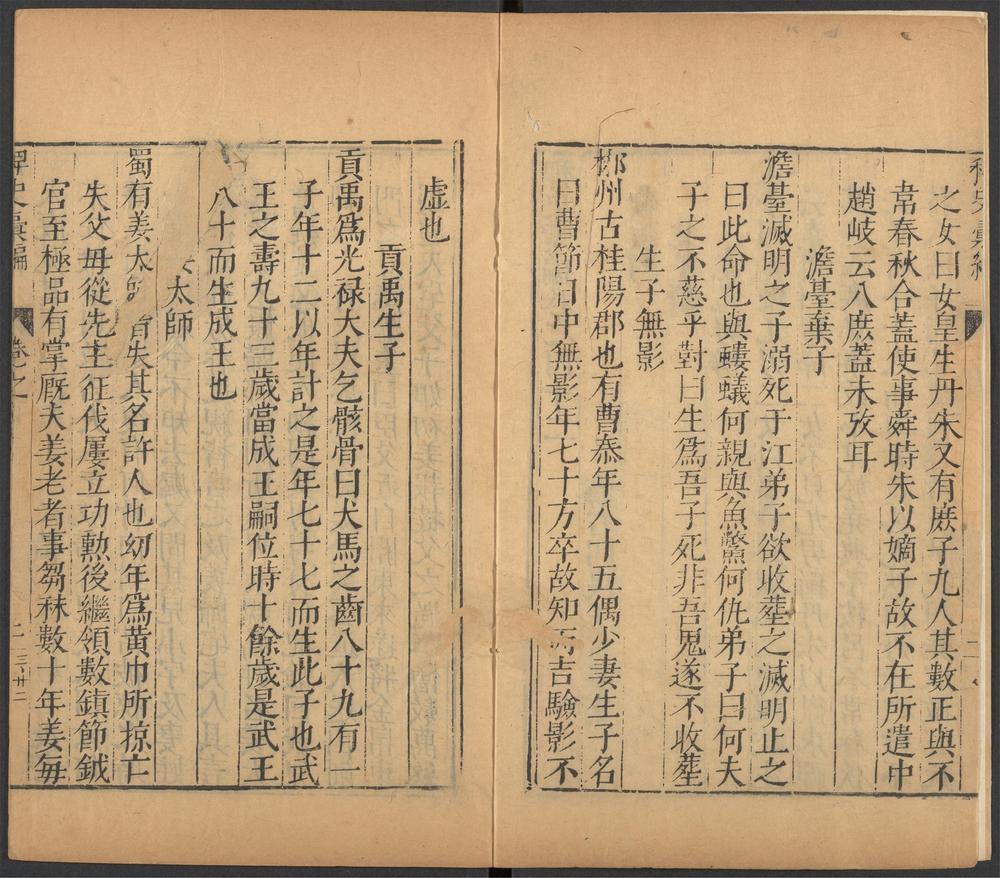 之女曰女皇生丹朱又有庶子九人其數正與不
常春秋合蓋使事舜時朱以嫡子故不在所遣中
趙岐云八庶蓋未攷耳
澹臺棄子
澹臺滅明之子溺死于江弟子欲收塟之滅明止之
曰此命也與螻蟻何親與魚鱉何仇弟子曰何夫
子之不慈乎對曰生爲吾子死非吾鬼遂不收塟
生子無影
郴州古桂陽郡也有曹泰年八十五偶少妻生子名
曰曹節日中無影年七十方卒故知丙吉驗影不
虛也
貢禹生子
貢禹爲光禄大夫乞骸骨曰犬馬之齒八十九有一
子年十二以年計之是年七十七而生此子也武
王之壽九十三歲當成王嗣位時十餘歲是武王
八十而生成王也
太師
蜀有姜太師 失其名許人也幼年爲黃巾所掠亡
失父毋從先主征伐屢立功勲後繼領數鎮節鉞
官至極品有掌厩夫姜老者事芻秣數十年姜毎
稗史彙編
卷之